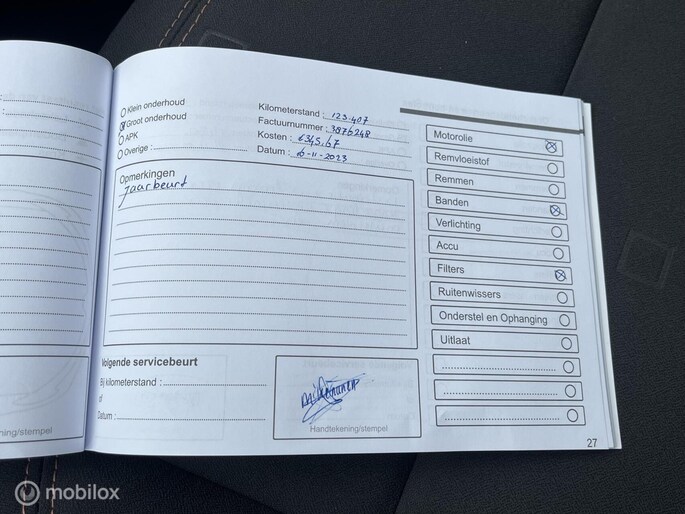 Klein onderhoud
Groot onderhoud
APK
Overige :
Kilometerstand : 123.407
Factuurnummer : 3876248
Kosten : €345,67
Datum : 6-11-2023
Opmerkingen
Jaarbeurt
Volgende servicebeurt
Bij kilometerstand :
of
Datum :
Handtekening/stempel
Motorolie
Remvloeistof
Remmen
Banden
Verlichting
Accu
Filters
Ruitenwissers
Onderstel en Ophanging
Uitlaat
27
ning/stempel
mobilox